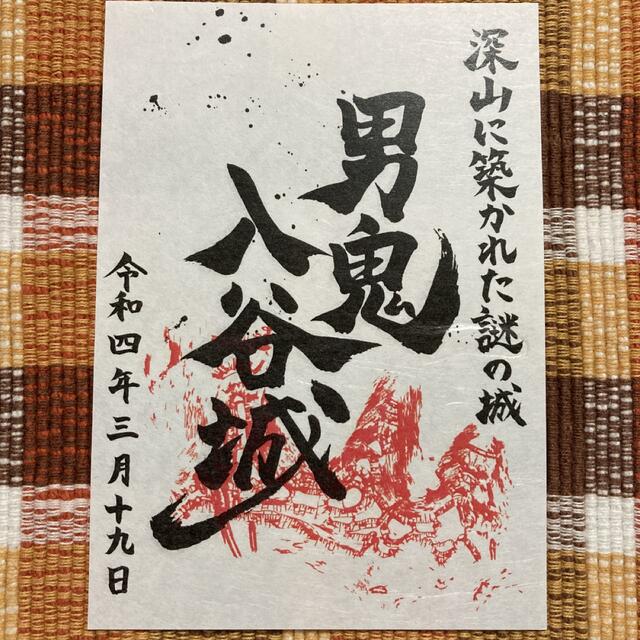 深山に築かれた謎の城
男鬼
八谷城
令和四年三月十九日